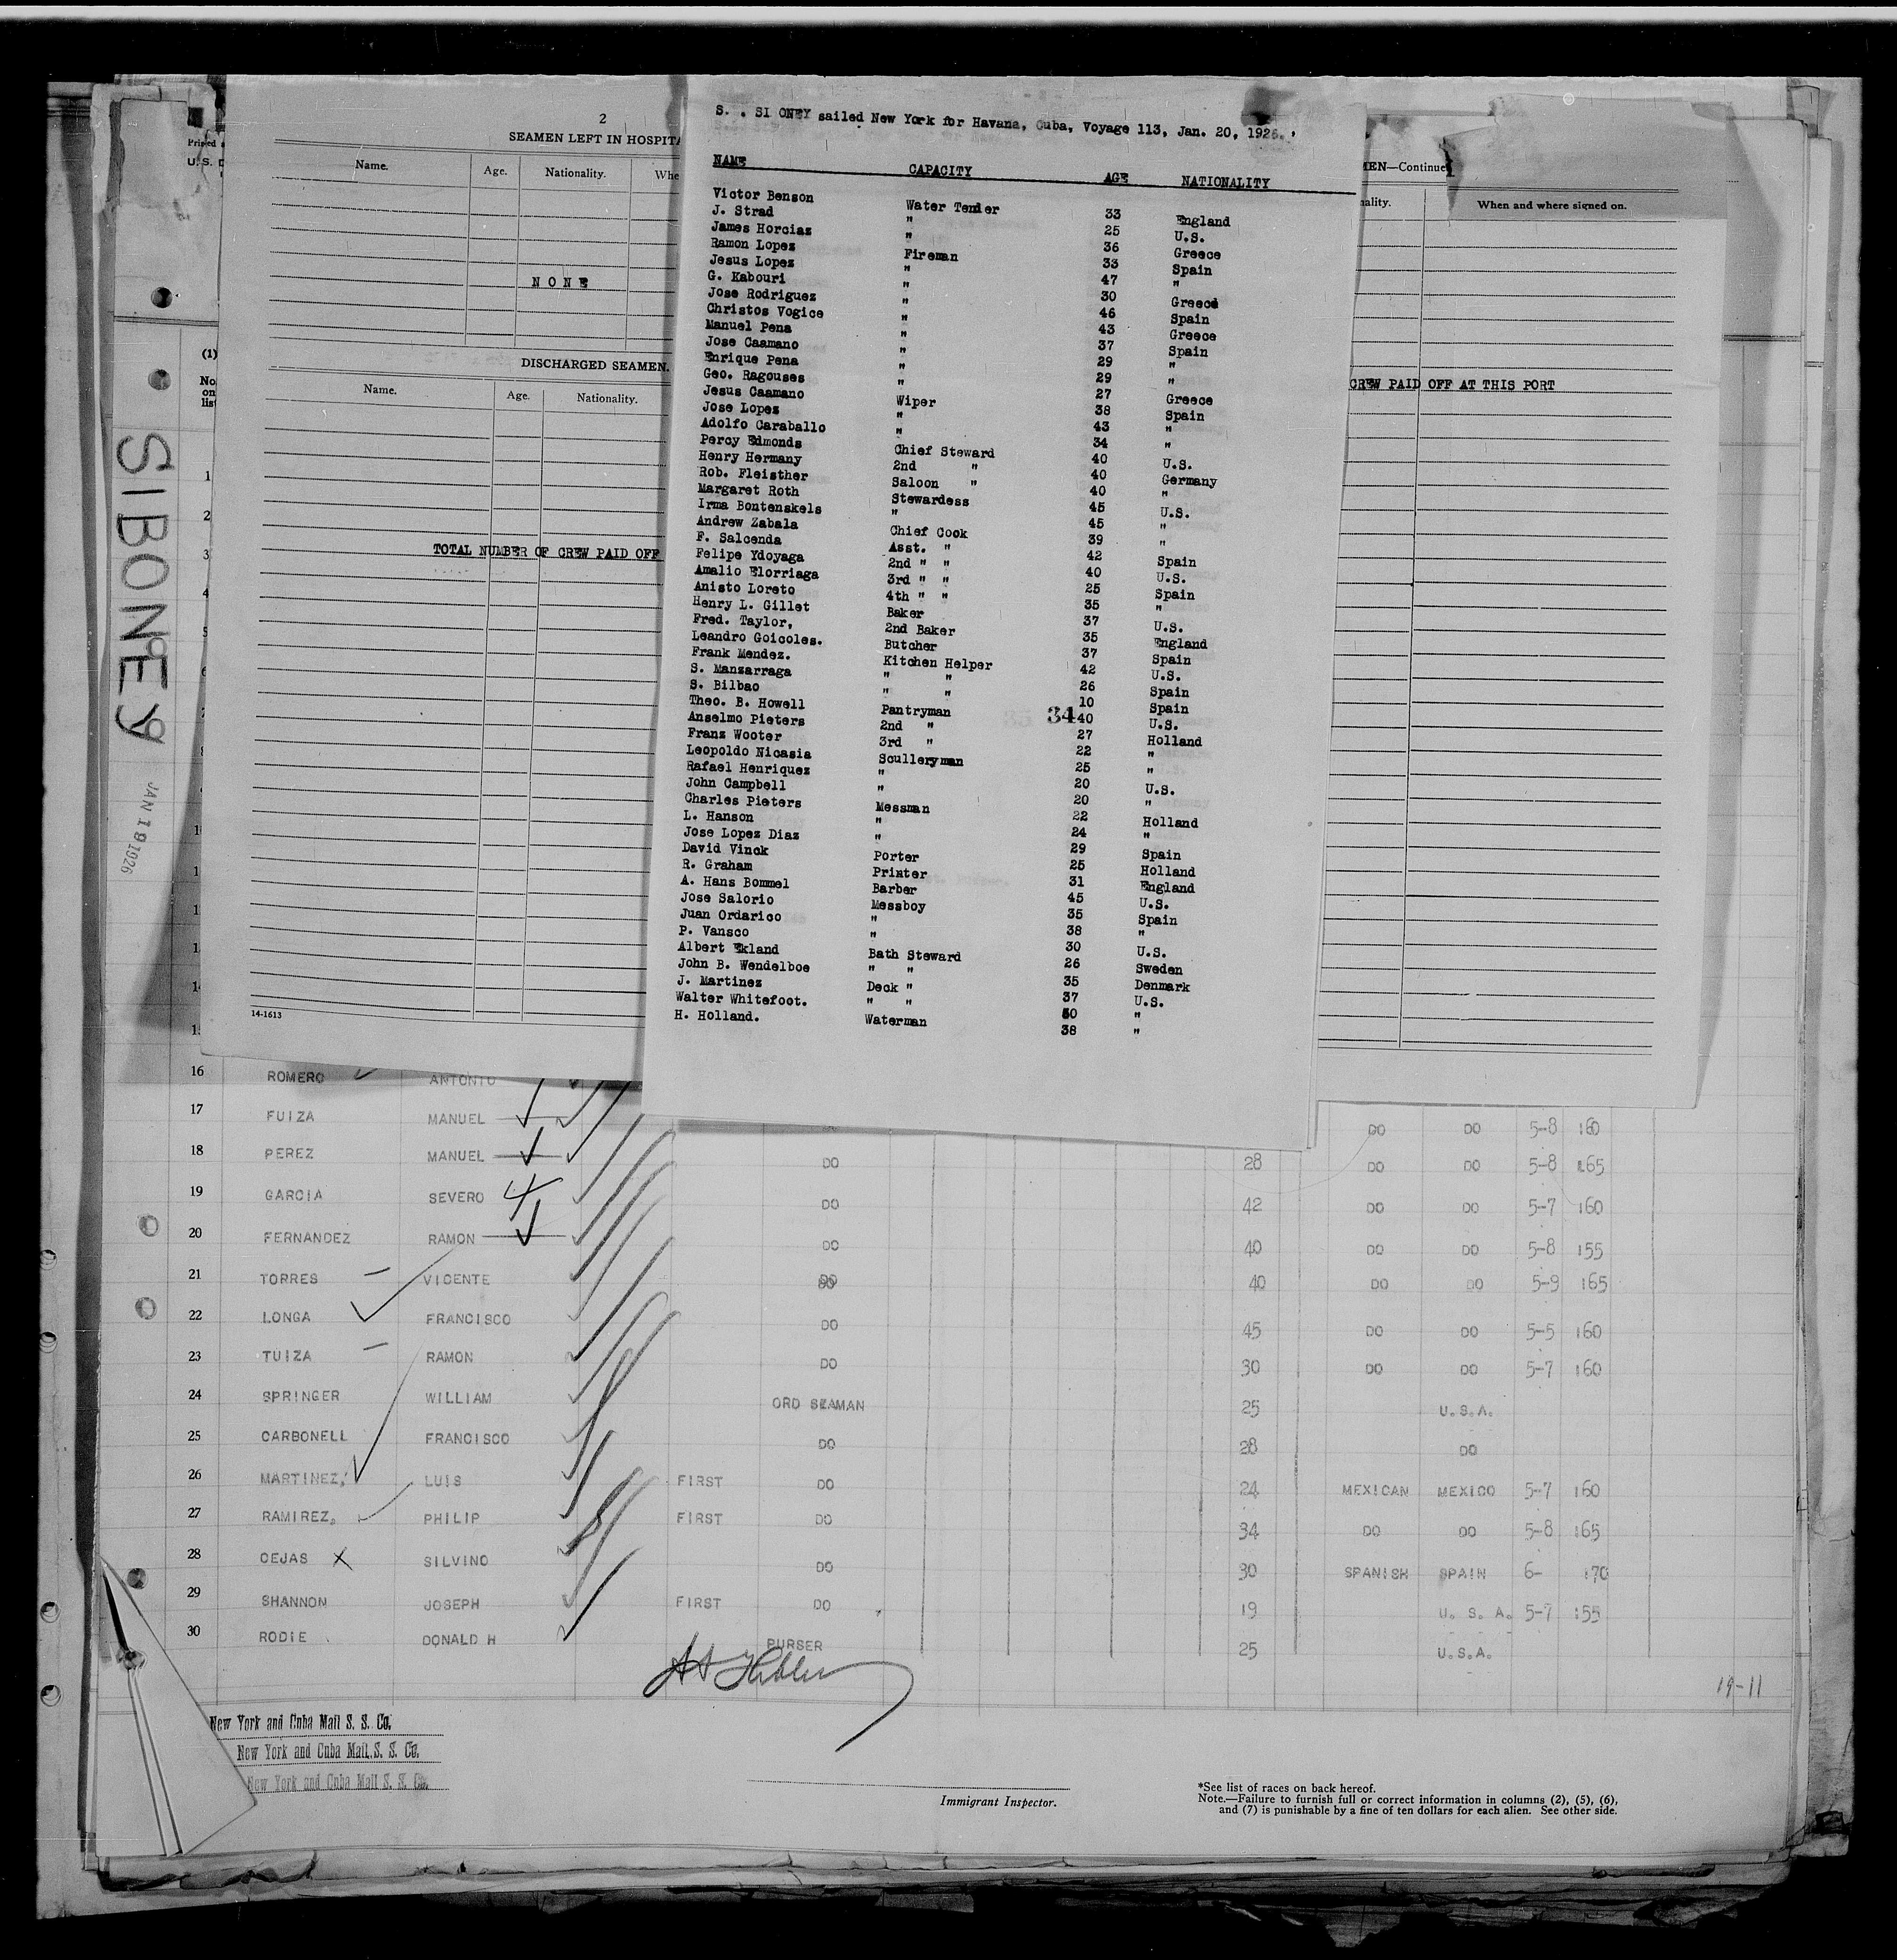 2
SEAMEN LEFT IN HOSPITA
Name. Age. Nationality. Whe
NONE
DISCHARGED SEAMEN.
Name. Age. Nationality.
TOTAL NUMBER OF CREW PAID OFF
14-1613
S. . SI ONEY sailed New York for Havana, Cuba, Voyage 113, Jan. 20, 1926.
NAME CAPACITY AGE NATIONALITY
Victor Benson Water Tender 33 England
J. Strad " 25 U.S.
James Horcias " 36 Greece
Ramon Lopez Fireman 33 Spain
Jesus Lopez " 47 "
G. Kabouri " 30 Greece
Jose Rodriguez " 46 Spain
Christos Vogice " 43 Greece
Manuel Pena " 37 Spain
Jose Caamano " 29 "
Enrique Pena " 29 "
Geo. Ragouses " 27 Greece
Jesus Caamano Wiper 38 Spain
Jose Lopez " 43 "
Adolfo Caraballo " 34 "
Percy Edmonds Chief Steward 40 U.S.
Henry Hermany 2nd " 40 Germany
Rob. Fleisther Saloon " 40 "
Margaret Roth Stewardess 45 U.S.
Irma Bontenskels " 45 "
Andrew Zabala Chief Cook 39 "
F. Salcenda Asst. " 42 Spain
Felipe Ydoyaga 2nd " " 40 U.S.
Amalio Elorriaga 3rd " " 25 Spain
Anisto Loreto 4th " " 35 "
Henry L. Gillet Baker 37 U.S.
Fred. Taylor, 2nd Baker 35 England
Leandro Goicoles. Butcher 37 Spain
Frank Mendez. Kitchen Helper 42 U.S.
S. Manzarraga " " 26 Spain
S. Bilbao " " 10 Spain
Theo. B. Howell Pantryman 34 40 U.S.
Anselmo Pieters 2nd " 27 Holland
Franz Wooter 3rd " 22 "
Leopoldo Nicasia Sculleryman 25 "
Rafael Henriquez " 20 U.S.
John Campbell " 20 "
Charles Pieters Messman 22 Holland
L. Hanson " 24 "
Jose Lopez Diaz " 29 Spain
David Vinck Porter 25 Holland
R. Graham Printer 31 England
A. Hans Bommel Barber 45 U.S.
Jose Salorio Messboy 35 Spain
Juan Ordarico " 38 "
P. Vansco " 30 U.S.
Albert Ekland Bath Steward 26 Sweden
John B. Wendelboe " " 35 Denmark
J. Martinez Deck " 37 U.S.
Walter Whitefoot. " " 50 "
H. Holland. Waterman 38 "
MEN—Continue
nality. When and where signed on.
CREW PAID OFF AT THIS PORT
Printed
U.S. D
(1)
No.
on
list
SIBONEY
JAN 19 1926
1
2
3
4
5
6
7
16 ROMERO ANTONIO
17 FUIZA MANUEL DO DO 5-8 160
18 PEREZ MANUEL DO 28 DO DO 5-8 165
19 GARCIA SEVERO DO 42 DO DO 5-7 160
20 FERNANDEZ RAMON DO 40 DO DO 5-8 155
21 TORRES VICENTE DO 40 DO DO 5-9 165
22 LONGA FRANCISCO DO 45 DO DO 5-5 160
23 TUIZA RAMON DO 30 DO DO 5-7 160
24 SPRINGER WILLIAM ORD SEAMAN 25 U.S.A.
25 CARBONELL FRANCISCO DO 28 DO
26 MARTINEZ, LUIS FIRST DO 24 MEXICAN MEXICO 5-7 160
27 RAMIREZ, PHILIP FIRST DO 34 DO DO 5-8 165
28 CEJAS X SILVINO DO 30 SPANISH SPAIN 6- 170
29 SHANNON JOSEPH FIRST DO 19 U. S. A. 5-7 155
30 RODIE DONALD H PURSER 25 U.S.A.
19-11
New York and Cuba Mail S. S. Co.
New York and Cuba Mail S. S. Co.
New York and Cuba Mail S. S. Co.
Immigrant Inspector.
*See list of races on back hereof.
Note.—Failure to furnish full or correct information in columns (2), (5), (6),
and (7) is punishable by a fine of ten dollars for each alien. See other side.